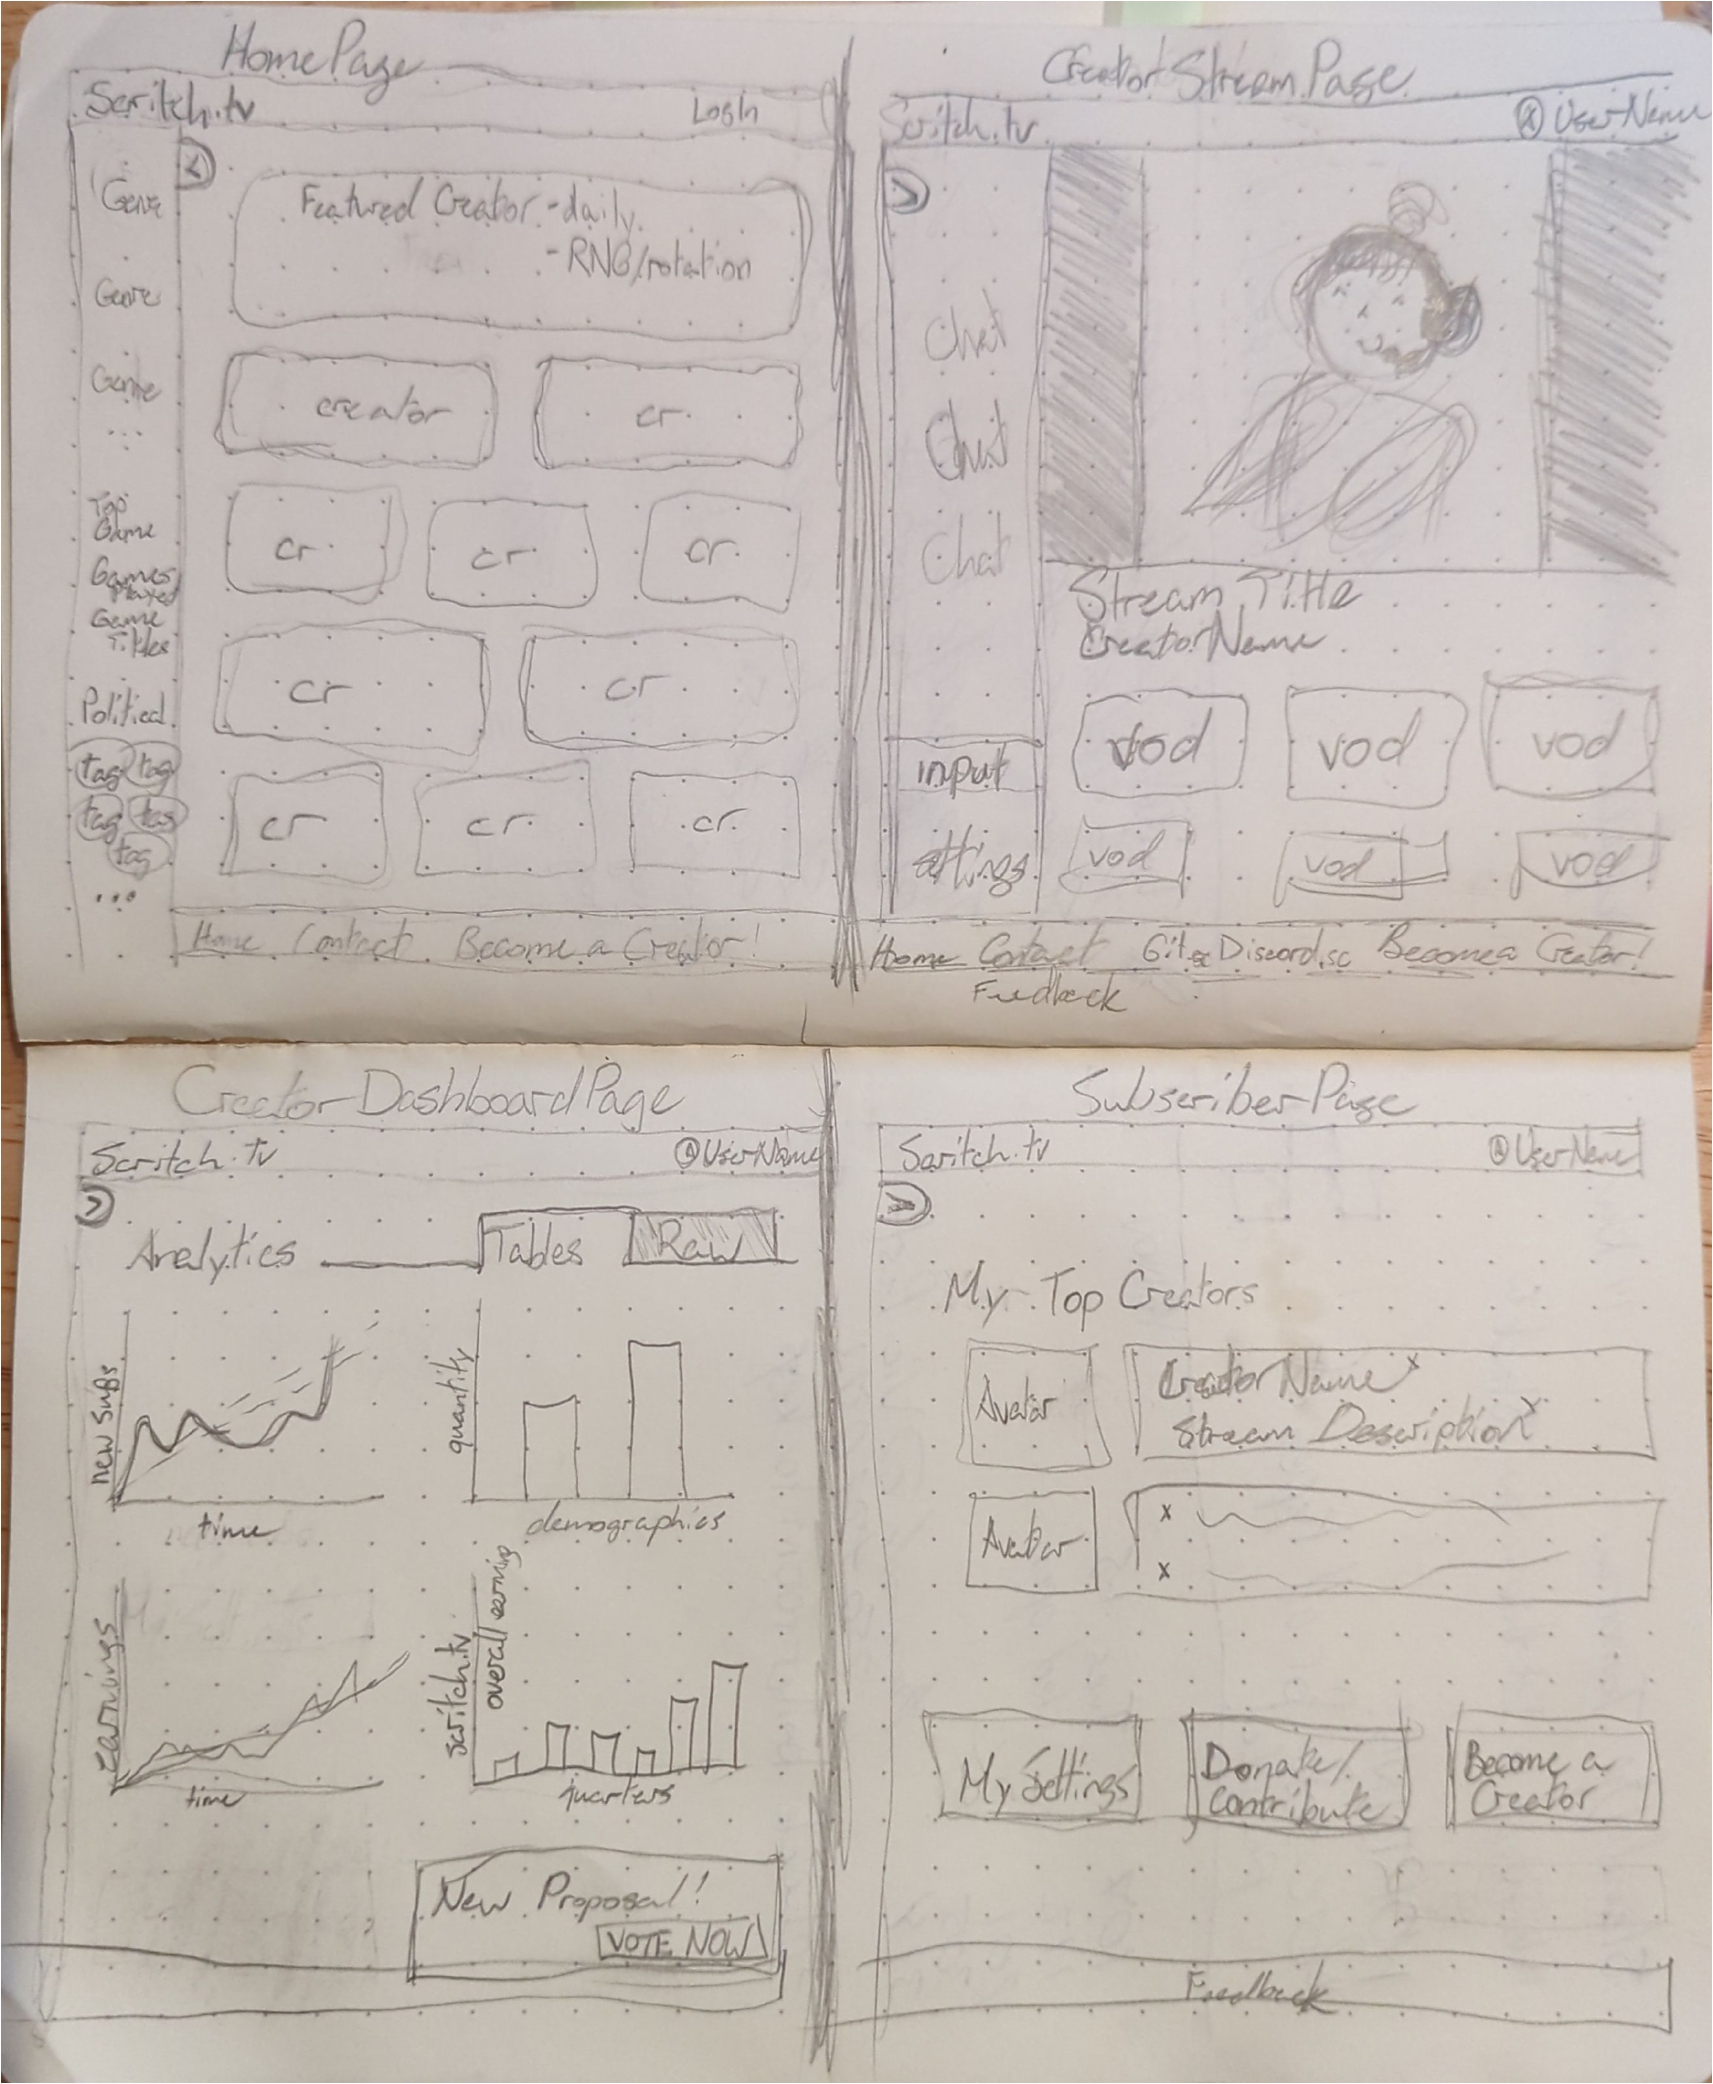 HomePage
Scritch.tv
LogIn
<
Genre
Genre
Genre
...
Top
Game
Games
Played
Game
Titles
Political
tag tag
tag tag
tag
...
Featured Creator - daily
- RNG/rotation
creator
cr
cr
cr
cr
cr
cr
cr
cr
cr
Home Contact Become a Creator!
Creator Stream Page
Scritch.tv
UserName
>
Chat
Chat
Chat
input
settings
Stream Title
CreatorName
vod
vod
vod
vod
vod
vod
Home Contact Git.sc Discord.sc Become a Creator!
Feedback
Creator Dashboard Page
Scritch.tv
UserName
>
Analytics
Tables
Raw
new subs
time
quantity
demographics
Earnings
time
scritch.tv
overall earning
quarters
New Proposal!
VOTE NOW
Subscriber Page
Scritch.tv
UserName
>
My Top Creators
Avatar
Creator Name x
Stream Description x
Avatar
x
x
My Settings
Donate/
Contribute
Become a
Creator
Feedback